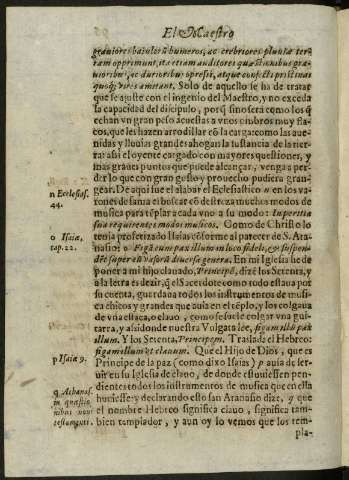 El Maestro
grauiores baiulorũ humeros, ac crebriores pluuiæ ter
ram opprimunt, ita etiam auditores quæstionibus gra-
uioribus, ac durioribus opressi, atque confecti pristinas
quoq; vires amittant. Solo de aquello se ha de tratar
que se ajuste con el ingenio del Maestro, y no exceda
la capacidad del discipulo, porq̃ sino será como los q̃
echan vn gran peso acuestas a vnos ombros muy fla-
cos, que les hazen arrodillar cõ la carga: como las aue-
nidas y lluuias grandes ahogan la sustancia de la tier
ra: asi el oyente cargado con mayores questiones, y
mas graues puntos que puede alcançar, venga a per-
der lo que con gran gusto y prouecho pudiera gran-
gear. De aqui fue el alabar el Eclesiastico n en los va-
rones de fama el buscar cõ destreza muchos modos de
musica para tẽplar a cada vno a su modo: In peritia
sua requirentes modos musicos. Como de Christo lo
tenia profetizado Isaias cõforme al parecer de S. Ata-
nasio: o Figã eum paxillum in loco fideli, & suspen-
dẽt super eũ vasorũ diuersa genera. En mi Iglesia he de
poner a mi hijo clauado, Principẽ, dize los Setenta, y
a la letra es dezir, q̃ el Sacerdote como todo estaua por
su cuenta, guardaua todos los instrumentos de musi-
ca chicos y grandes que auia en el tẽplo, y los colgaua
de vna estaca, o clauo, como se suele colgar vna gui-
tarra, y asi donde nuestra Vulgata lee, figam illũ pax
illum. Y los Setenta, Principem. Traslada el Hebreo:
figam illum vt clauum. Que el Hijo de Dios, que es
Principe de la paz (como dixo Isaias) p auia de ser-
uir en su Iglesia de clauo, de donde estuuiessen pen-
dientes todos los instrumentos de musica que en ella
huuiesse: y declarando esto san Atanasio dize, q que
el nombre Hebreo significa clauo, significa tam-
bien templador, y aun oy lo vemos que los tem-
pla-
n Ecclesias.
44.
o Isaiæ,
cap. 22.
p Isaiæ 9.
q Athanas.
in quæstio
nibus noui
testamenti.